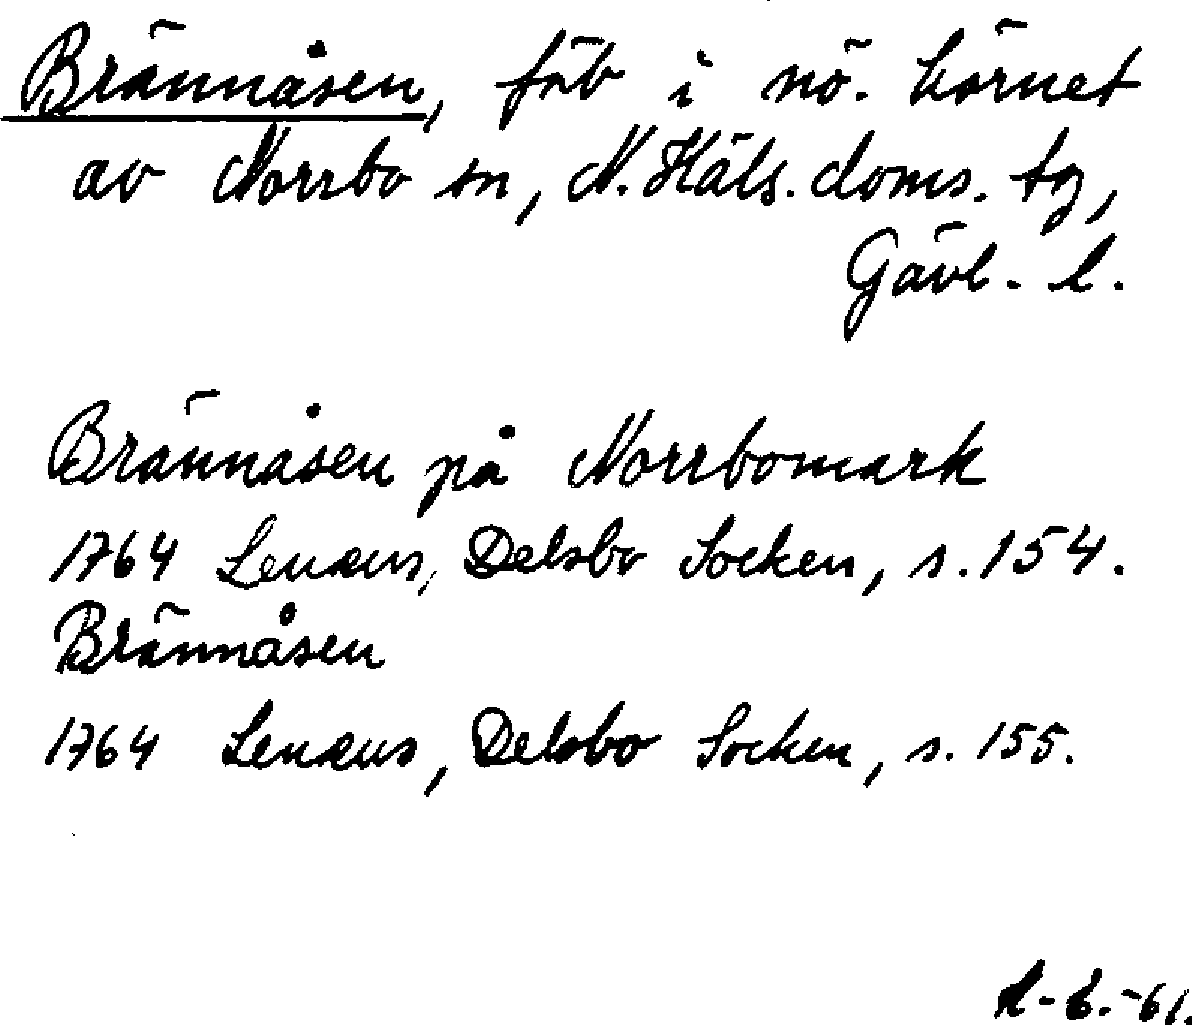 Brännåsen, fäb i nö. hörnet
av Norrbo sn, N. Häls. doms. tg,
Gävl. l.
Brännåsen på Norrbomark
1764 Lenæus, Delsbo Socken, s. 154.
Brännåsen
1764 Lenæus, Delsbo Socken, s. 155.